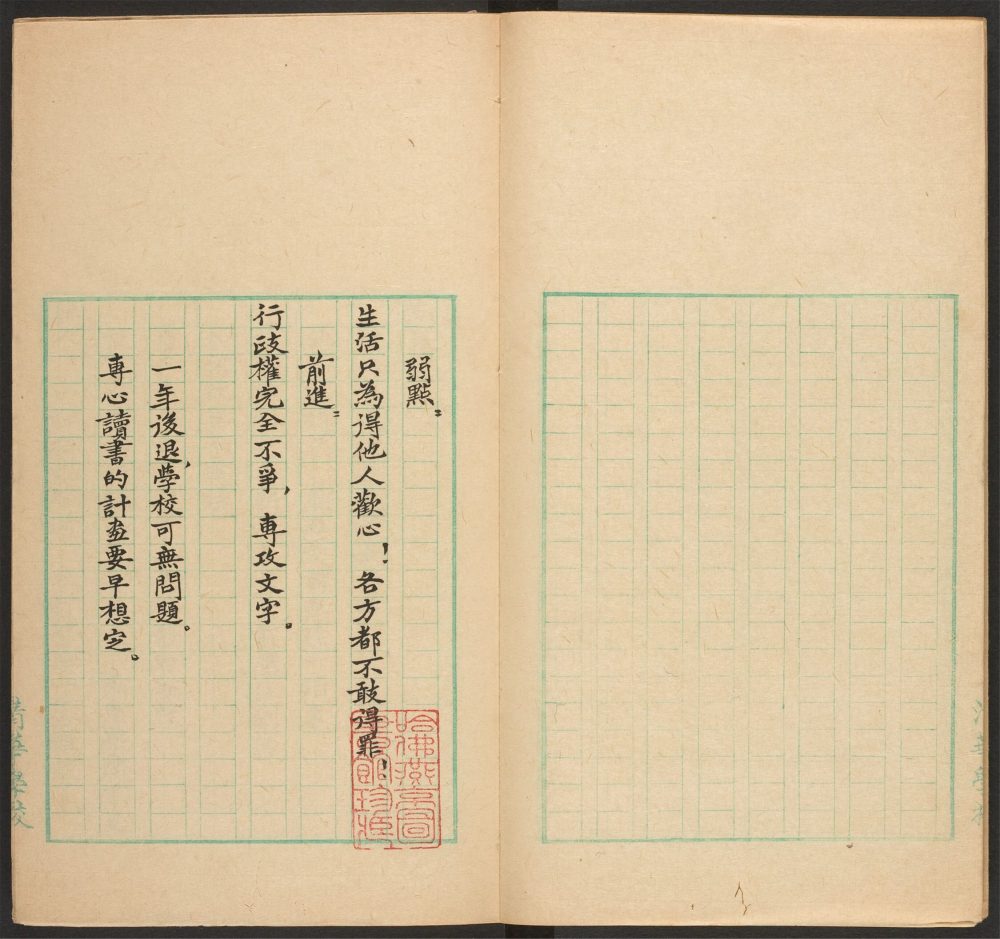 弱點。
生活只為得他人歡心！各方都不敢得罪！
前進。
行政權完全不爭，專攻文字。
一年後退學校可無問題。
專心讀書的計畫要早想定。
哈佛燕京圖
書館珍藏
清華學校